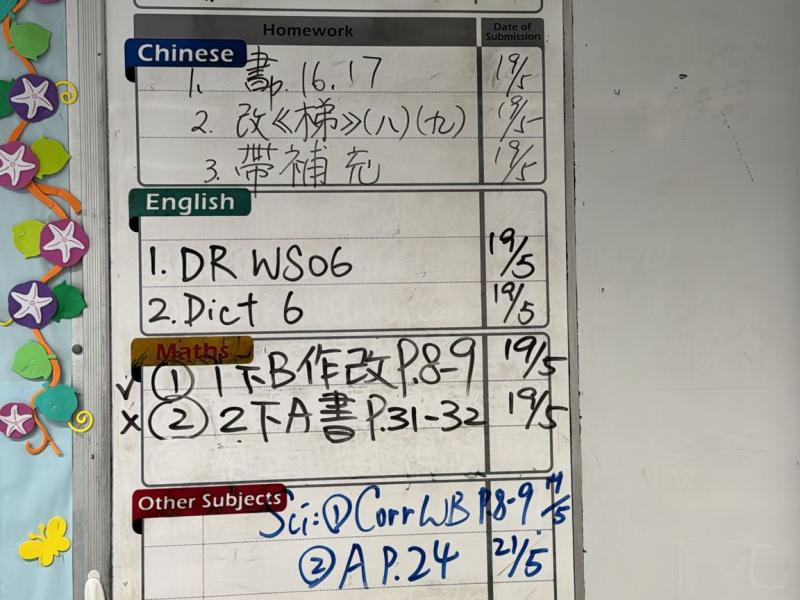 Homework Date of Submission
Chinese
1. 書p.16.17 19/5
2. 改《梯》(八)(九) 19/5
3. 帶補充 19/5
English
1. DR WS06 19/5
2. Dict 6 19/5
Maths
✓ ① 1下B作改P.8-9 19/5
× ② 2下A書P.31-32 19/5
Other Subjects
Sci: ① Corr WB P.8-9 19/5
② A P.24 21/5